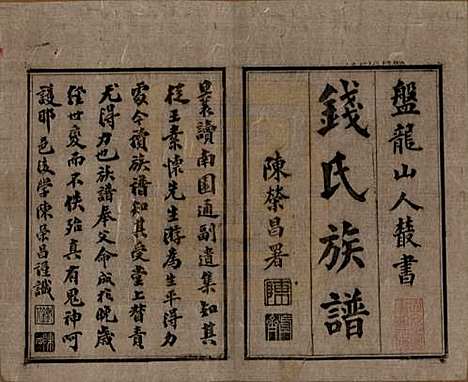 盤龍山人叢書
錢氏族譜
陳榮昌署
皇最讀南園通副遺集知其
從王素懷先生游為生平得力
處今讀族譜知其受堂上督責
尤得力也族譜奉父命成於晚歲
經世變而不佚殆真有鬼神呵
護耶邑後學陳榮昌謹識